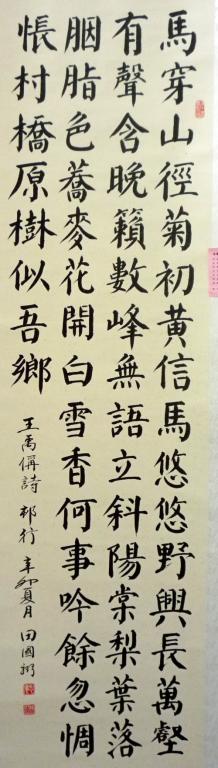 馬穿山徑菊初黃信馬悠悠野興長萬壑
有聲含晚籟數峰無語立斜陽棠梨葉落
胭脂色蕎麥花開白雪香何事吟餘忽惆
悵村橋原樹似吾鄉
王禹偁詩 邨行 辛卯夏月 田國